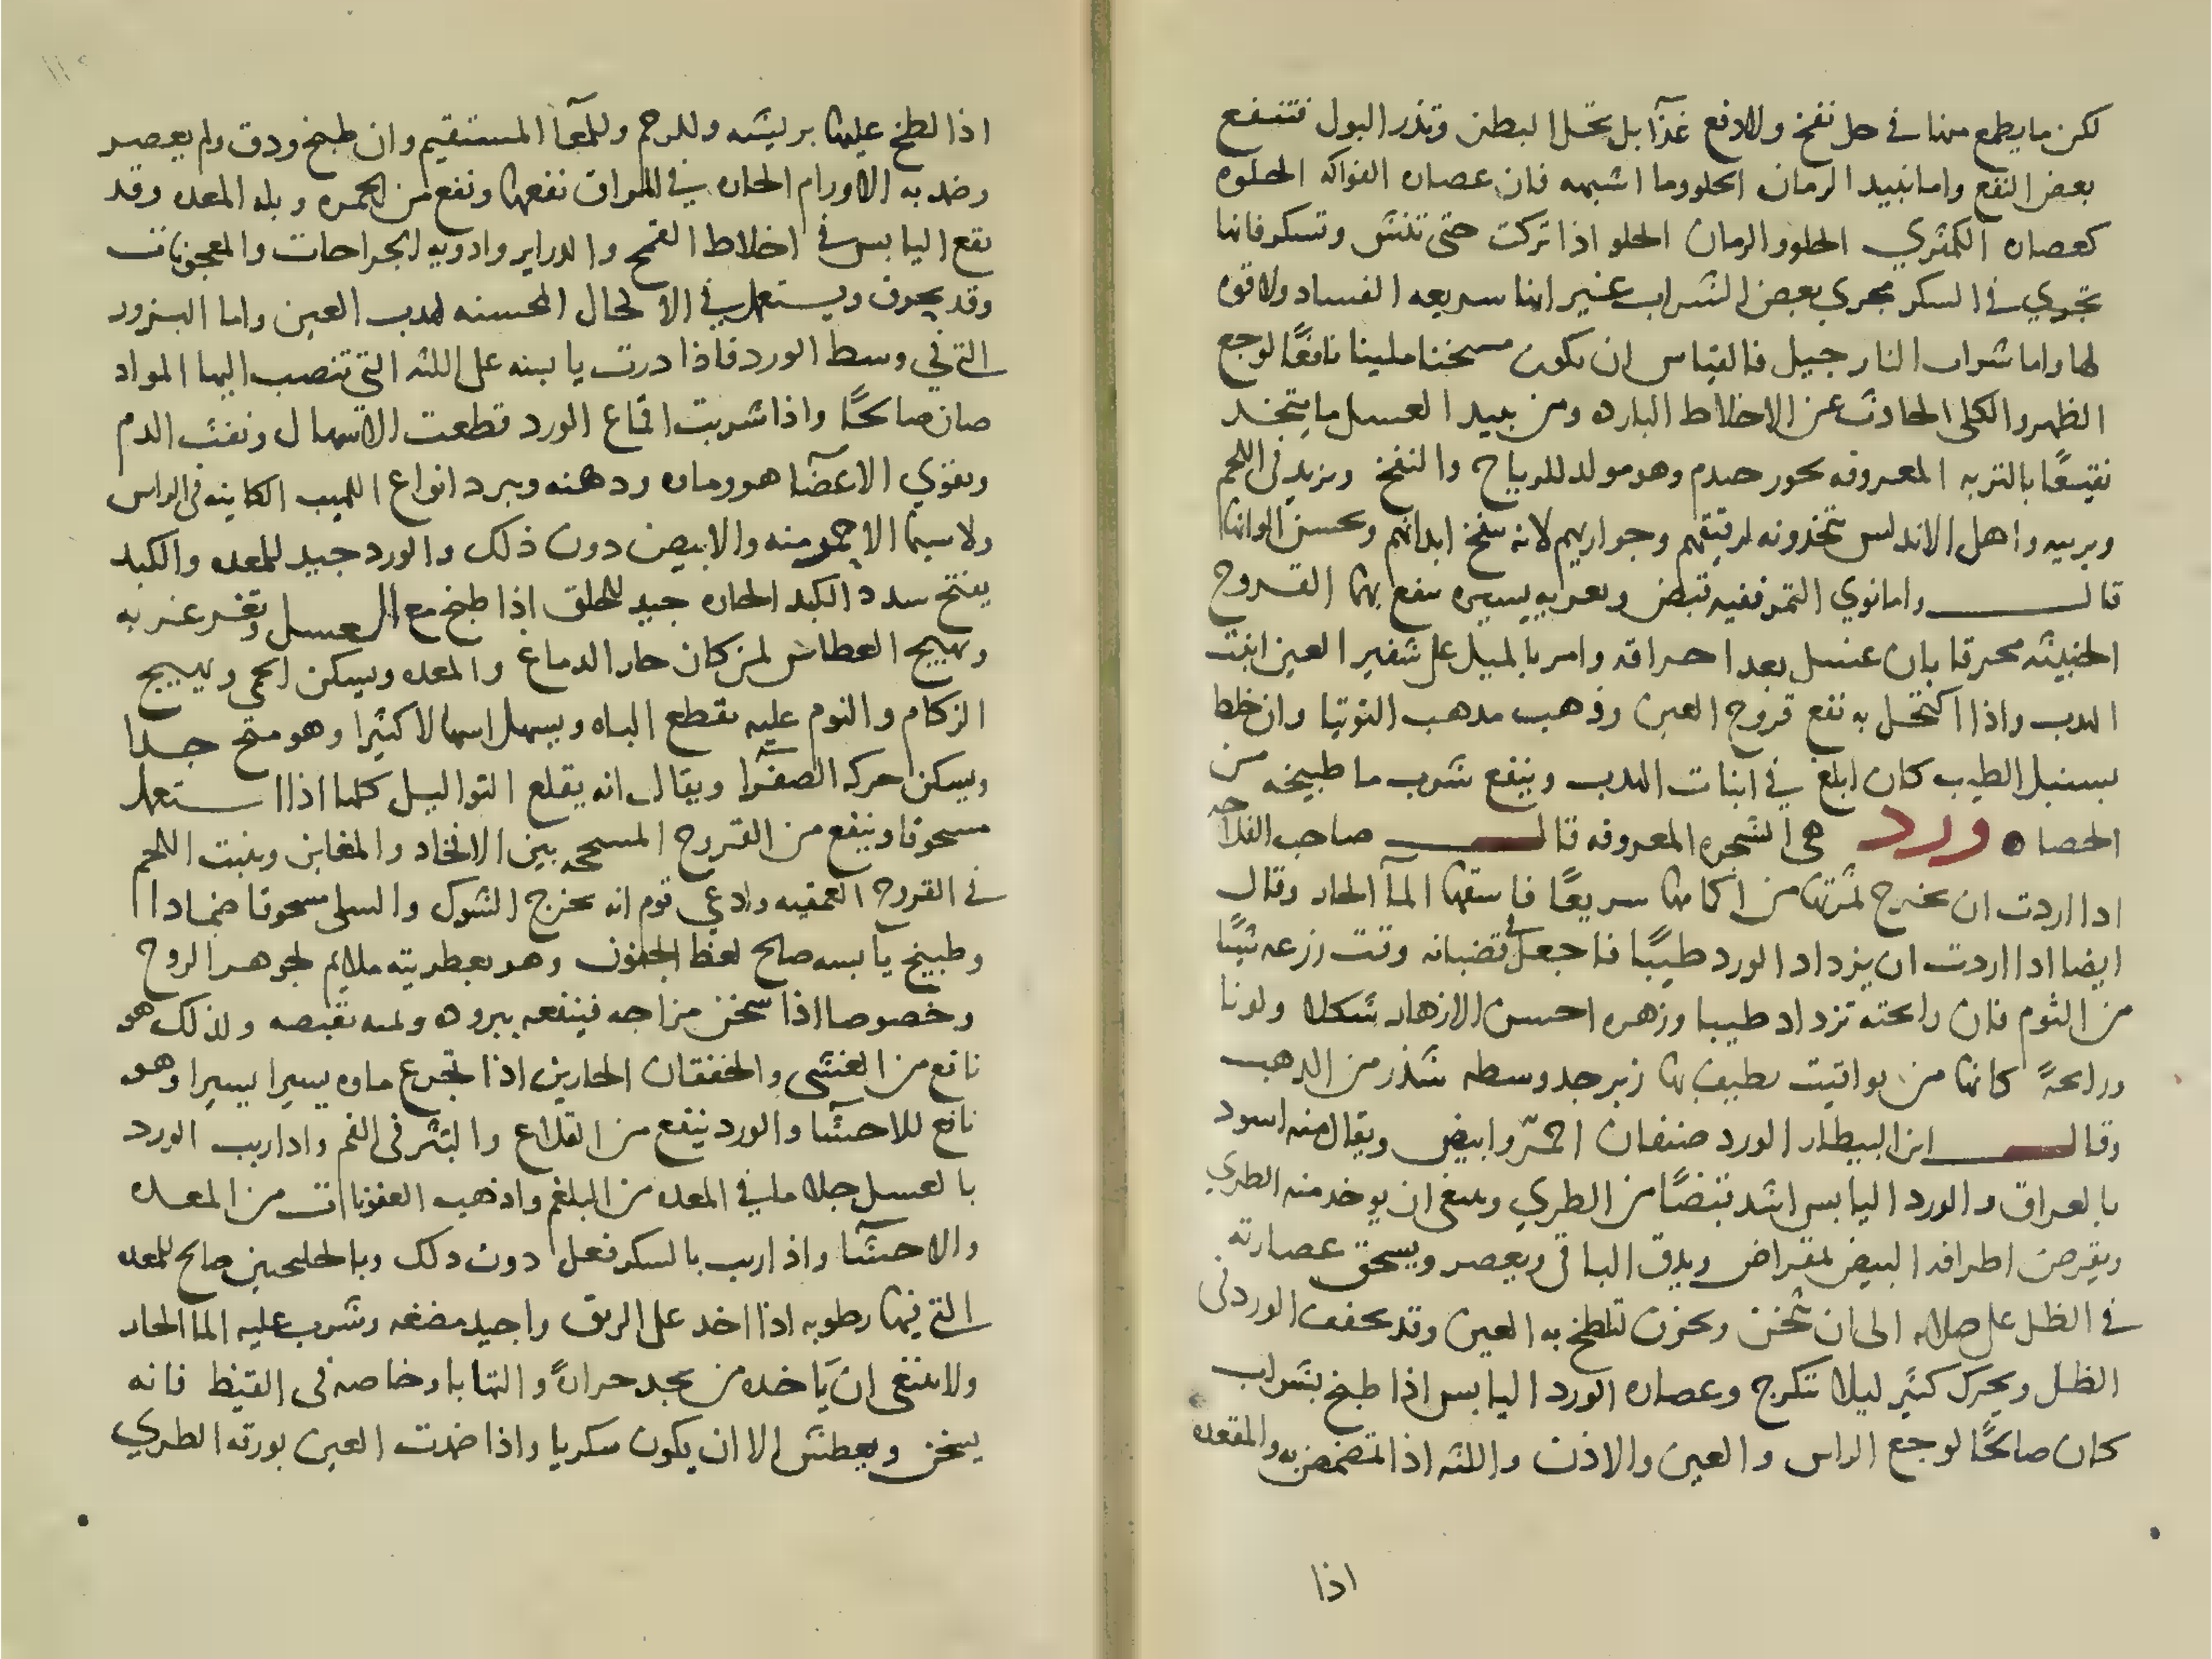 لكن ما يطبخ منها في خل نفخ ولا دفع غذآ بل يحل البطن وتدر البول فتنفع
بعض النفع واما نبيد الرمان الحلو وما اشبهه فان عصاره الفواكه الحلوه
كعصاره الكمثري الحلو والرمان الحلو اذا تركت حتى تنش وتسكر فانها
تجري في السكر مجري بعض الشراب غير انها سريعه الفساد ولا قوه
لها واما شراب النارجيل فالقياس ان يكون مسخنا ملينا نافعًا لوجع
الظهر والكلى الحادث عن الاخلاط البارده ومن نبيد العسل ما يتخد
نقيعًا بالتربه المعروفه بحور صدم وهو مولد للرياح والنفخ ويزيد في اللحم
ويربيه واهل الاندلس يتخذونه لرقيقهم وجواريهم لانه ينفخ ابدانهم ويحسن الوانها
قال واما نوي التمر ففيه قبض وتغريه يسيره ينفع بها القروح
الخبيثه محرقا بان غسل بعد احراقه وامر بالميل على شفير العين انبت
الهدب واذا اكتحل به نفع قروح العين وذهب مدهب التوتيا وان خلط
بسنبل الطيب كان ابلغ في انبات الهدب وينفع شرب ما طبيخه من
الحصا ورد هي الشجره المعروفه قال صاحب الفلاحه
ادا اردت ان يخرج ثمرتها من اكمامها سريعًا فاسقها المآ الحار وقال
ايضا ادا اردت ان يزداد الورد طيبًا فاجعل في قضبانه وقت زرعه شيًا
من الثوم فان رايحته تزداد طيبا وزهره احسن الازهار شكلا ولونا
ورايحةً كانها من يواقيت يطيف بها زبرجد وسطه شذر من الدهب
وقال ابن البيطار الورد صنفان احمر وابيض ويقال منه اسود
بالعراق والورد اليابس اشد قبضًا من الطري وينبغي ان يوخد منه الطري
ويقرض اطرافه البيض بمقراض ويدق الباقي ويعصر ويسحق عصارته
في الظل على صلايه الى ان تثخن ويخزن لتلطخ به العين وقد يجفف الورد في
الظل ويحرك كثير ليلا يتكرج وعصاره الورد اليابس اذا طبخ بشراب
كان صالحًا لوجع الراس والعين والاذن واللثه اذا تمضمض به والمقعده
اذا
اذا لطخ عليها بريشه وللرحم وللمعآ المستقيم وان طبخ ودق ولم يعصر
وضمد به الاورام الحاره في المراق نفعها ونفع من الحمره وبله المعده وقد
يقع اليابس في اخلاط القمح والدراير وادويه الجراحات والمعجونات
وقد يحرق ويستعمل في الاكحال المحسنه لهدب العين واما البزور
التي في وسط الورد فاذا درت يابسه على اللثه التي تنصب اليها المواد
كان صالحًا واذا شربت اقماع الورد قطعت الاسهال ونفث الدم
ويقوي الاعضآ هو وماوه ودهنه ويبرد انواع اللهيب الكاينه في الراس
ولا سيما الاحمر منه والابيض دون ذلك والورد جيد للمعده والكبد
يفتح سدد الكبد الحاره جيد للحلق اذا طبخ مع العسل وتغرغر به
ويهيج العطاس لمن كان حار الدماغ والمعده ويسكن الحمي ويهيج
الزكام والنوم عليه يقطع الباه ويسهل اسهالا كثيرا وهو مقح جدا
ويسكن حركه الصفرآ ويقال انه يقلع التواليل كلها اذا استعمل
مسحوقا وينفع من القروح المسحجه بين الافخاد والمغابن وينبت اللحم
في القروح العميقه وادعي قوم انه يخرج الشوك والسلى مسحوقا ضمادا
وطبيخ يابسه صالح لغلظ الجفون وهو بعطريته ملايم لجوهر الروح
وخصوصا اذا سخن مزاجه فينفعه ببروده ولمه بقبضه ولذلك هو
نافع من الغشي والخفقان الحارين اذا تجرع ماوه يسيرا يسيرا وهو
نافع للاحشآ والورد ينفع من القلاع والبثر في الفم وادا ربب الورد
بالعسل جلا ما في المعده من البلغم واذهب العفونات من المعده
والاحشآ واذا ربب بالسكر فعل دون دلك وبالجلنجبين صالح للمعده
التي فيها رطوبه اذا اخد على الريق واجيد مضغه وشرب عليه الما الحار
ولا ينبغي ان ياخده من يجد حرارةً والتهابا وخاصه في القيظ فانه
يسخن ويعطش الا ان يكون سكريا واذا ضمدت العين بورقه الطري